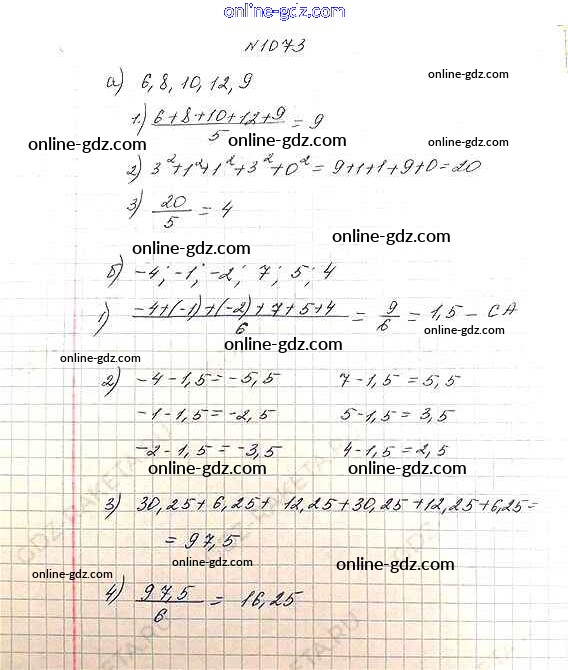 online-gdz.com
N1073
а) 6, 8, 10, 12, 9
online-gdz.com
1) (6+8+10+12+9)/5 = 9
online-gdz.com online-gdz.com online-gdz.com
2) 3²+1²+1²+3²+0² = 9+1+1+9+0=20
3) 20/5 = 4
online-gdz.com online-gdz.com
б) -4; -1; -2; 7; 5; 4
1) (-4+(-1)+(-2)+7+5+4)/6 = 9/6 = 1,5 - СА
online-gdz.com
online-gdz.com online-gdz.com
2) -4-1,5=-5,5 7-1,5=5,5
-1-1,5=-2,5 5-1,5=3,5
-2-1,5=-3,5 4-1,5=2,5
online-gdz.com online-gdz.com
3) 30,25+6,25+12,25+30,25+12,25+6,25=
= 97,5
online-gdz.com online-gdz.com online-gdz.com
4) 97,5/6 = 16,25
online-gdz.com online-gdz.com